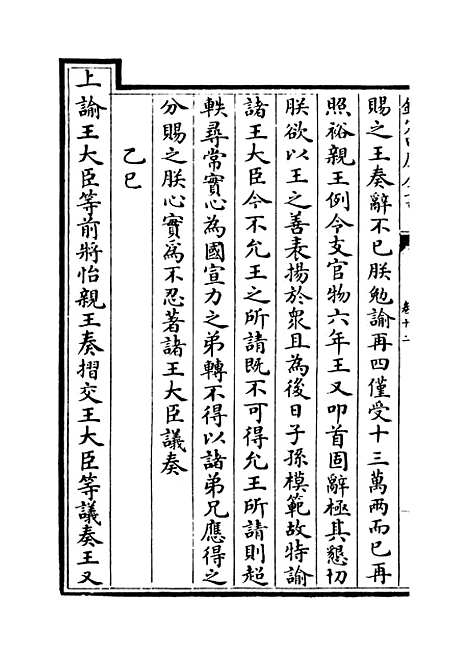 賜之王奏辭不已朕勉諭再四僅受十三萬兩而已再
照裕親王例令支官物六年王又叩首固辭極其懇切
朕欲以王之善表揚於衆且為後日子孫模範故特諭
諸王大臣今不允王之所請既不可得允王所請則超
軼尋常實心為國宣力之弟轉不得以諸弟兄應得之
分賜之朕心實爲不忍著諸王大臣議奏
乙巳
上諭王大臣等前將怡親王奏摺交王大臣等議奏王又
卷十二